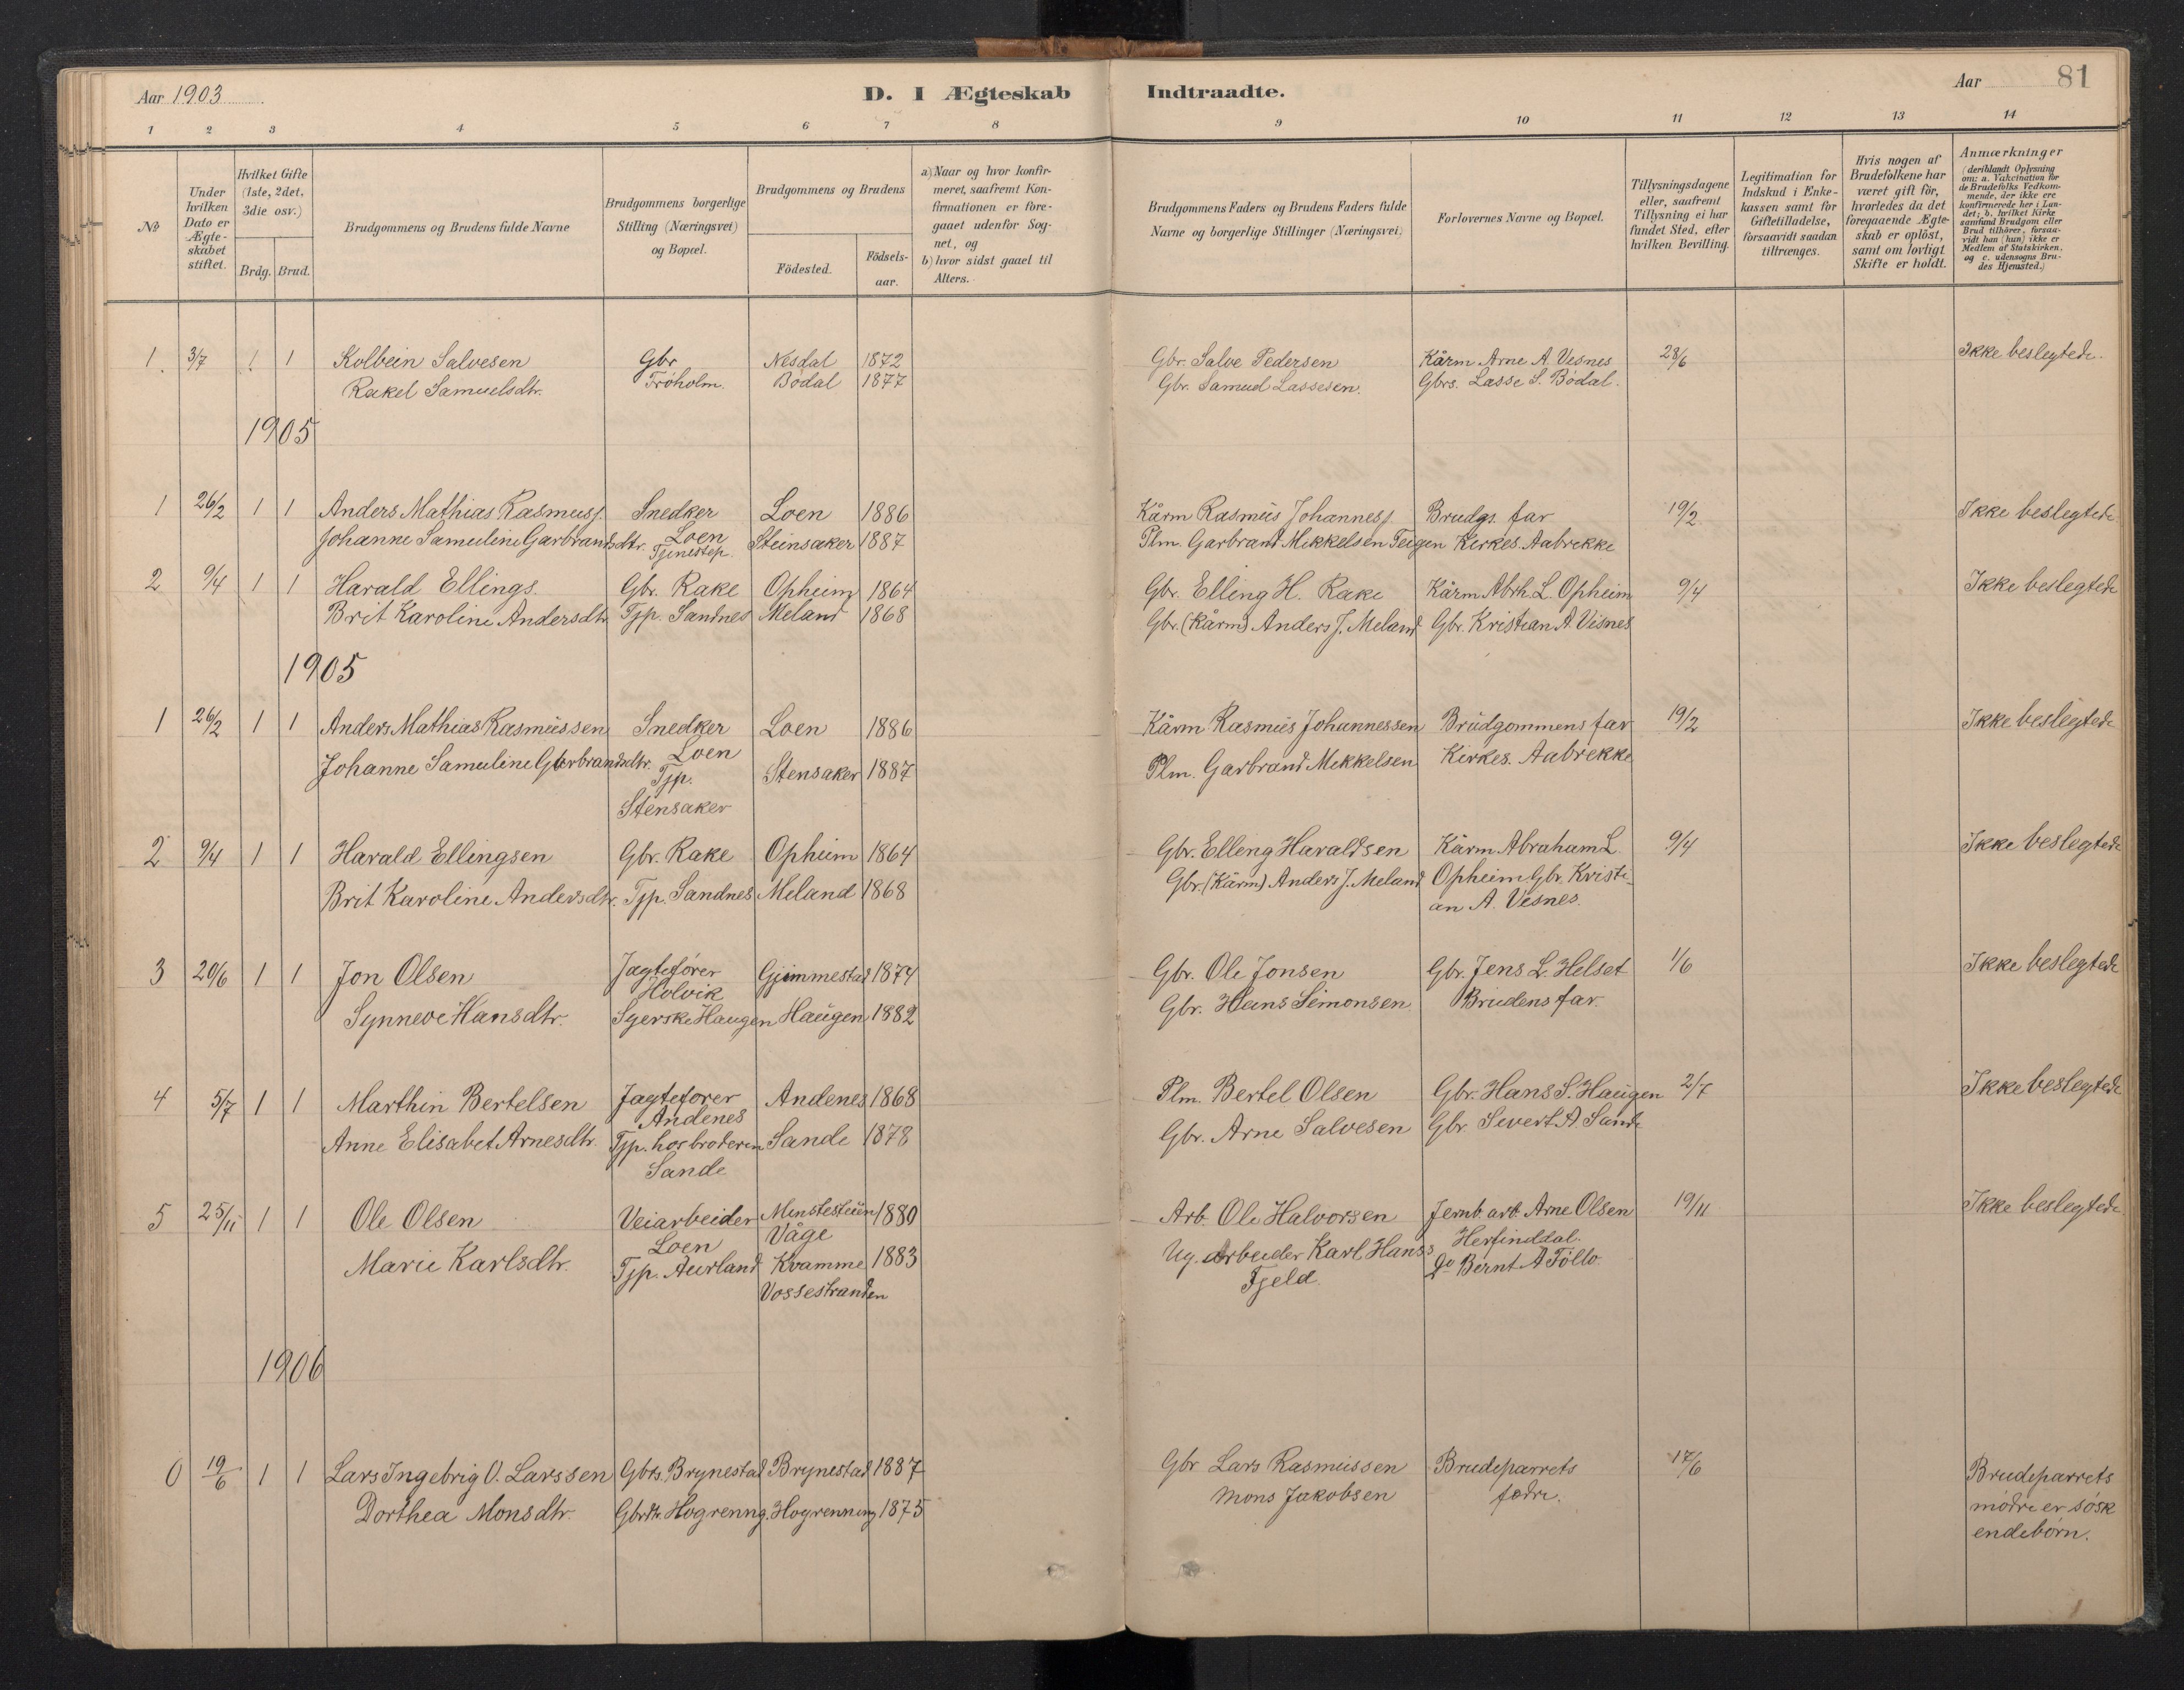 Aar 1903
D. I Ægteskab Indtraadte.
Aar 81
1 2 3 4 5 6 7 8 9 10 11 12 13 14
No
Under hvilken Dato er Ægteskabet stiftet.
Hvilket Gifte (1ste, 2det, 3die osv.)
Brdg. Brud.
Brudgommens og Brudens fulde Navne
Brudgommens borgerlige Stilling (Næringsvei) og Bopæl.
Brudgommens og Brudens
Födested. Födselsaar.
a) Naar og hvor konfirmeret, saafremt Konfirmationen er foregaaet udenfor Sognet, og
b) hvor sidst gaaet til Alters.
Brudgommens Faders og Brudens Faders fulde Navne og borgerlige Stillinger (Næringsvei)
Forlovernes Navne og Bopæl.
Tillysningsdagene eller, saafremt Tillysning ei har fundet Sted, efter hvilken Bevilling.
Legitimation for Indskud i Enkekassen samt for Giftetilladelse, forsaavidt saadan tiltrænges.
Hvis nogen af Brudefolkene har været gift för, hvorledes da det foregaaende Ægteskab er oplöst, samt om lovligt Skifte er holdt.
Anmærkninger
(deriblandt Oplysning om: a. Vakcination for de Brudefolks Vedkommende, der ikke ere konfirmerede her i Landet; b. hvilket Kirkesamfund Brudgom eller Brud tilhörer, forsaavidt han (hun) ikke er Medlem af Statskirken, og c. udensogns Brudes Hjemsted.)
1. 3/7 1 1 Kolbein Salvesen Gbr Nesdal 1872 Gbr. Salve Pedersen Kårm Arne A. Visnes 28/6 Ikke beslegtede.
Rakel Samuelsdtr. Trøholm. Bødal 1877 Gbr. Samuel Lassesen. Gbrs. Lasse S. Bødal.
1905
1 26/2 1 1 Anders Mathias Rasmuss. Snedker Loen 1886 Kårm Rasmus Johanness. Brudgs. far 19/2 Ikke beslegtede
Johanne Samuline Garbrandsdtr. Loen Tjenestep. Steinsaker 1887 Plm. Garbrand Mekkelsen Teigen Kirkes. Aabrekke
2 9/4 1 1 Harald Ellings. Gbr. Rake Opheim 1864 Gbr. Elling H. Rake Kårm Abrh. L. Opheim 9/4 Ikke beslegtede
Brit Karoline Andersdtr. Tjp. Sandnes Meland 1868 Gbr. (Kårm) Anders J. Meland Gbr. Kristian A. Visnes
1905
1 26/2 1 1 Anders Mathias Rasmussen Snedker Loen 1886 Kårm Rasmus Johannessen Brudgommens far 19/2 Ikke beslegtede
Johanne Samuline Garbrandsdtr. Loen Tjp. Stensaker 1887 Plm. Garbrand Mekkelsen Kirkes. Aabrekke
Stensaker
2 9/4 1 1 Harald Ellingsen Gbr. Rake Opheim 1864 Gbr. Elling Haraldsen Kårm Abraham L. 9/4 Ikke beslegtede
Brit Karoline Andersdtr. Tjp. Sandnes Meland 1868 Gbr. (Kårm) Anders J. Meland Opheim Gbr. Kristi-
an A. Visnes.
3 20/6 1 1 Jon Olsen Jagtefører Gjimmestad 1874 Gbr. Ole Jonsen Gbr. Jens L. Helset 1/6 Ikke beslegtede
Holvik
Synneve Hansdtr. Syerske Haugen Haugen 1882 Gbr. Hans Simonsen. Brudens far
4 5/7 1 1 Marthin Bertelsen Jagtefører Andenes 1868 Plm. Bertel Olsen Gbr. Hans S. Haugen 2/7 Ikke beslegtede
Andenes
Anne Elisabet Arnesdtr. Tjp. hos broderen Sande 1878 Gbr. Arne Salvesen Gbr. Sivert A. Sande
Sande
5 25/11 1 1 Ole Olsen Veiarbeider 1880 Arb. Ole Halvorsen Jernb. arb. Arne Olsen 19/11 Ikke beslegtede
Loen Våge Herfindal.
Marie Karlsdtr. Tjp. Aurland Kvamme 1883 Ug. arbeider Karl Hanss. Do Bernt A
Vossestranden Fjeld.
1906
0 19/6 1 1 Lars Ingebrig O. Larssen Gbrs. Brynestad Brynestad 1887 Gbr Lars Rasmussen Brudeparrets 17/6 Brudeparrets
Dorthea Monsdtr. Gbrdtr. Hogrenng. Hogrenning 1875 Mons Jakobsen fædre. mødre er søsk
endebørn.